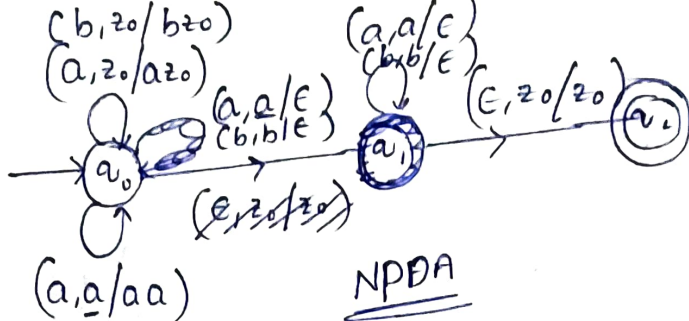 (b, z0/bz0)
(a, z0/az0)
(a, a/ε)
(b, b/ε)
(a, a/ε)
(b, b/ε)
(ε, z0/z0)
q0
q1
q2
(ε, z0/z0)
(a, a/aa)
NPDA